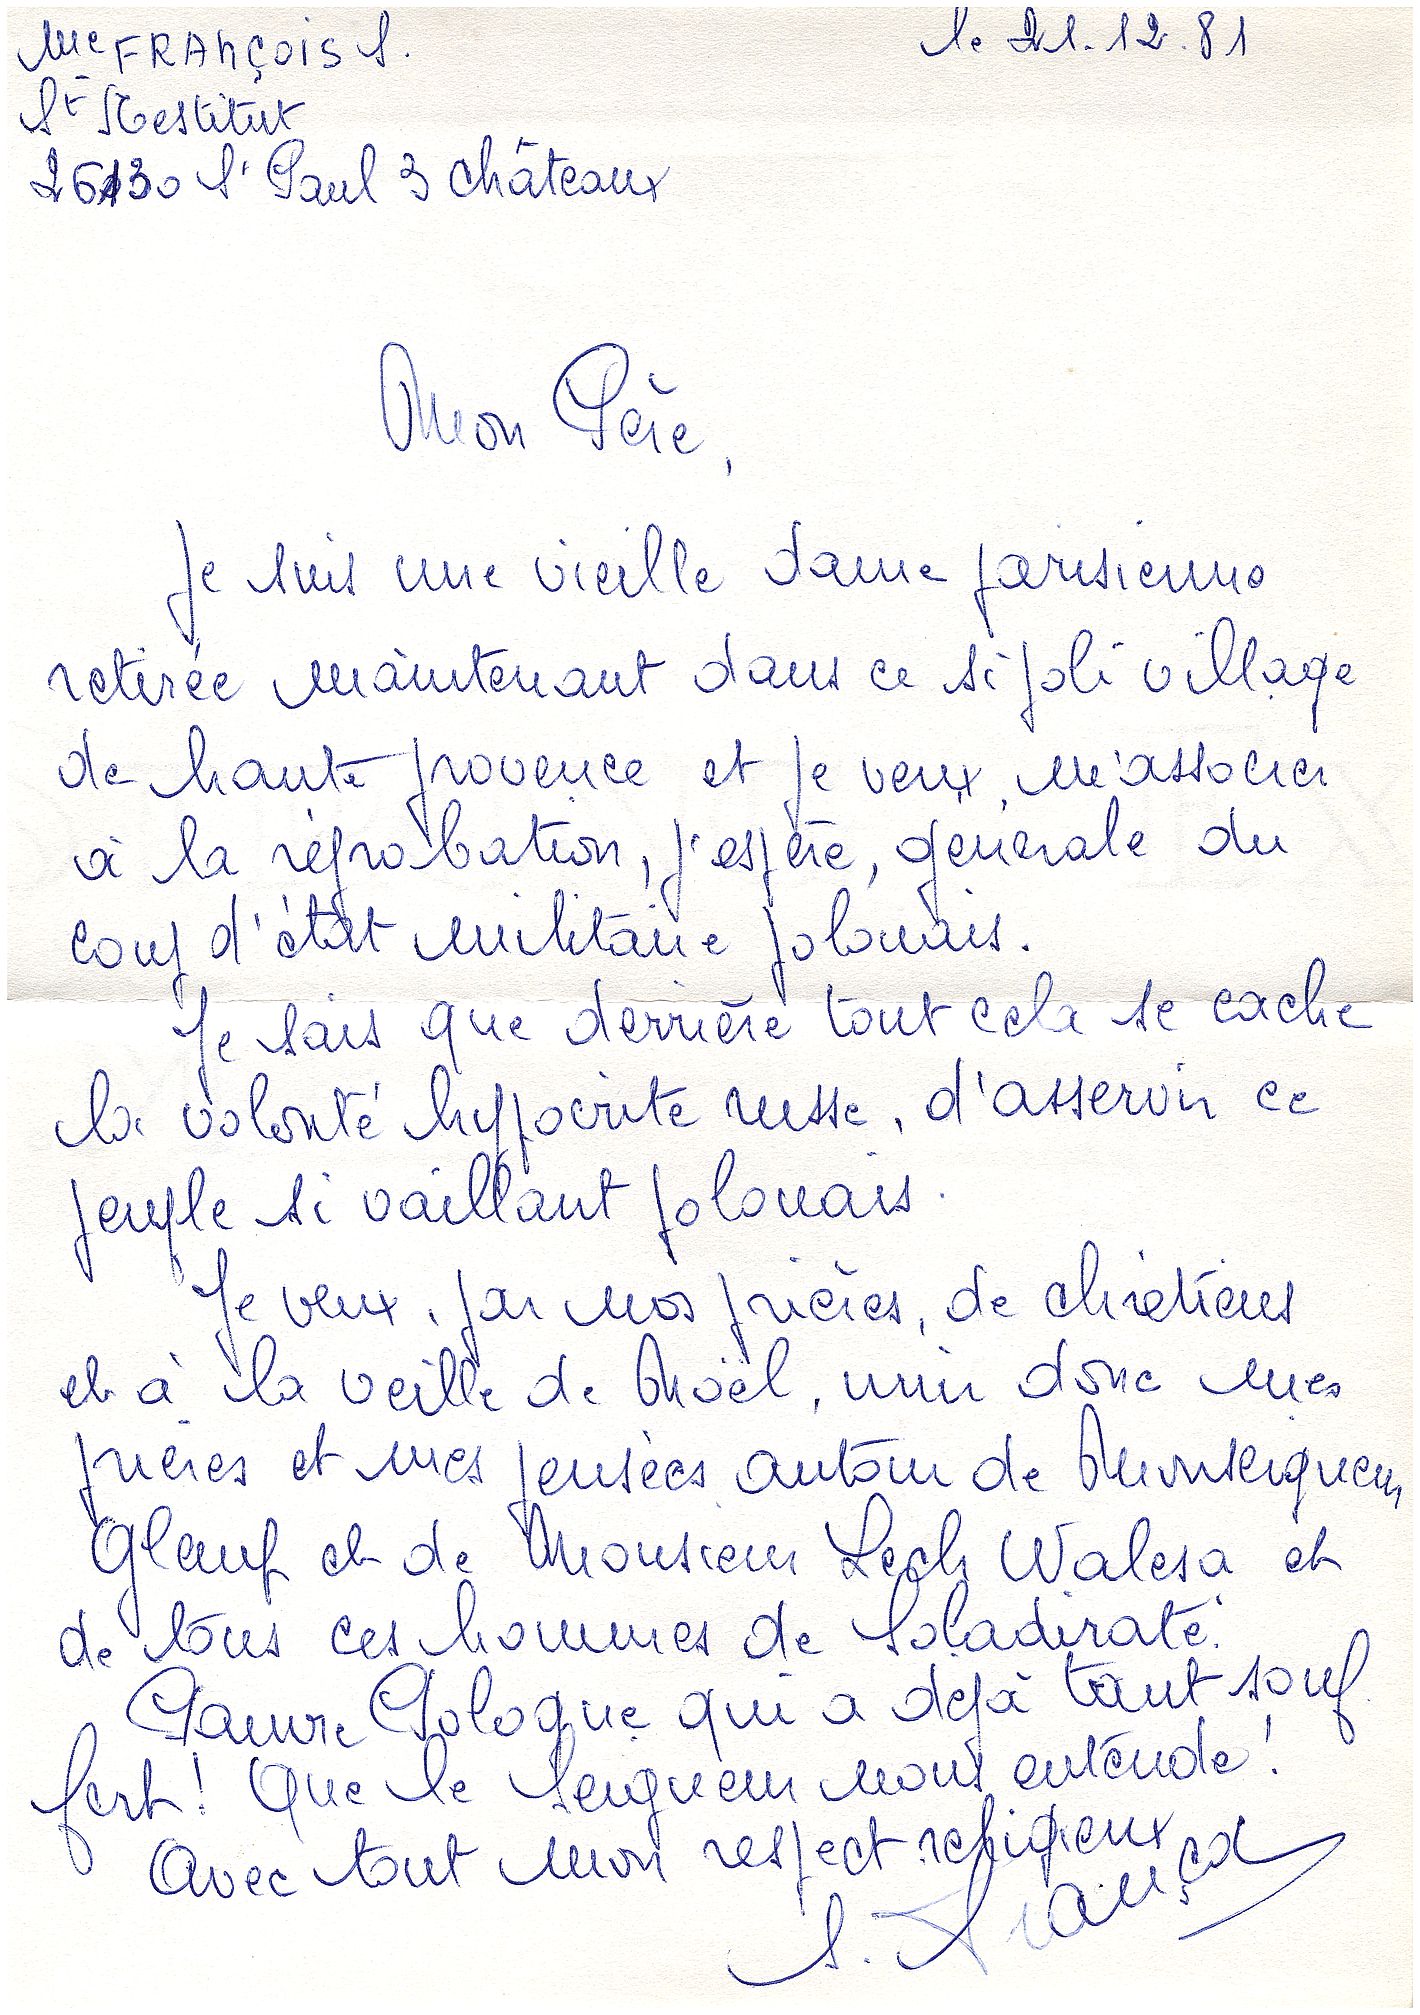 Mme FRANÇOIS S.
le 21.12.81
St Restitut
26130 St Paul 3 châteaux
Mon Père,
Je suis une vieille dame parisienne
retirée maintenant dans ce si joli village
de haute provence et je veux, m'associer
à la réprobation, j'espère, générale du
coup d'état militaire polonais.
Je sais que derrière tout cela se cache
la volonté hypocrite russe, d'asservir ce
peuple si vaillant polonais.
Je veux, par nos prières, de chrétiens
et à la veille de Noël, unir donc mes
prières et mes pensées autour de Monseigneur
Glemp et de Monsieur Lech Walesa et
de tous ces hommes de Soladiraté.
Pauvre Pologne qui a déjà tant souf
fert ! Que le Seigneur nous entende !
Avec tout mon respect religieux
S. François